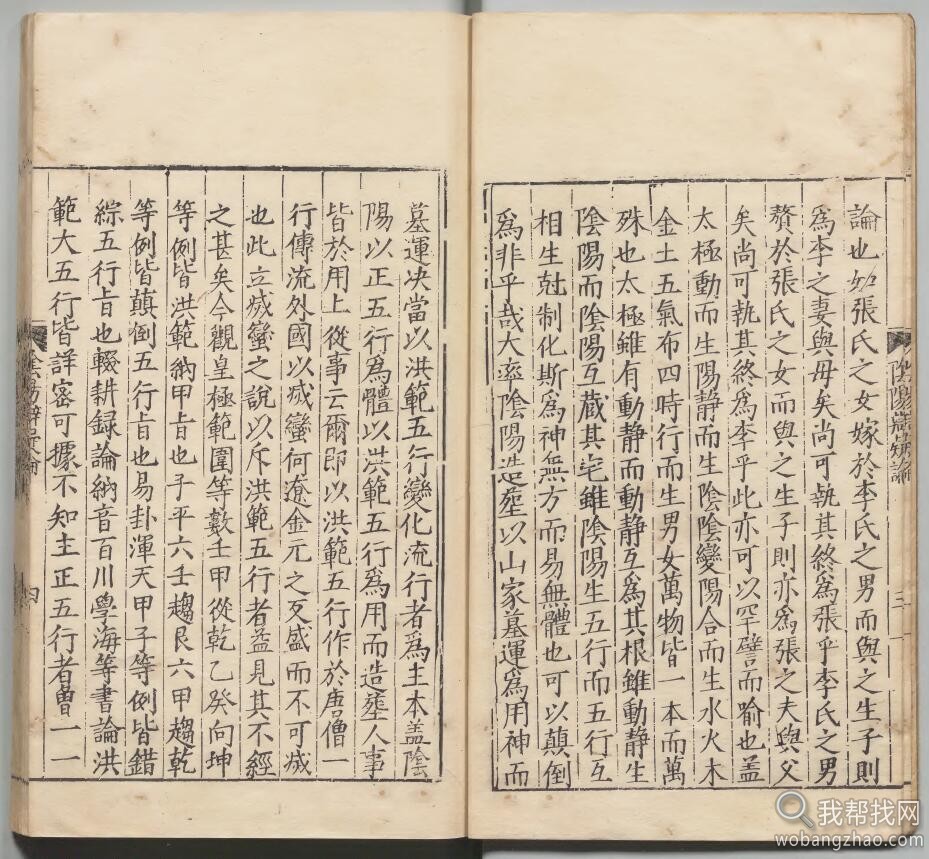 論也如張氏之女嫁於李氏之男而與之生子則
爲李之妻與母矣尚可執其終爲張乎李氏之男
贅於張氏之女而與之生子則亦爲張之夫與父
矣尚可執其終爲李乎此亦可以罕譬而喻也盖
太極動而生陽静而生陰陰變陽合而生水火木
金土五氣布四時行而生男女萬物皆一本而萬
殊也太極雖有動静而動静互爲其根雖動静生
陰陽而陰陽互蔵其宅雖陰陽生五行而五行互
相生尅制化斯爲神無方而易無體也可以顛倒
爲非乎哉大率陰陽造塟以山家墓運爲用神而
三
墓運决當以洪範五行變化流行者爲主本盖陰
陽以正五行爲體以洪範五行爲用而造塟人事
皆於用上從事云爾即以洪範五行作於唐僧一
行傳流外國以烕蠻何遼金元之叐盛而不可烕
也此立烕蠻之說以斥洪範五行者益見其不經
之甚矣今觀皇極範圍等數壬甲從乾乙癸向坤
等例皆洪範納甲旨也子平六壬趨艮六甲趨乾
等例皆顛倒五行旨也易卦渾天甲子等例皆錯
綜五行旨也輟耕録論納音百川學海等書論洪
範大五行皆詳密可據不知主正五行者曾一一
四
我帮找网
wobangzhao.com